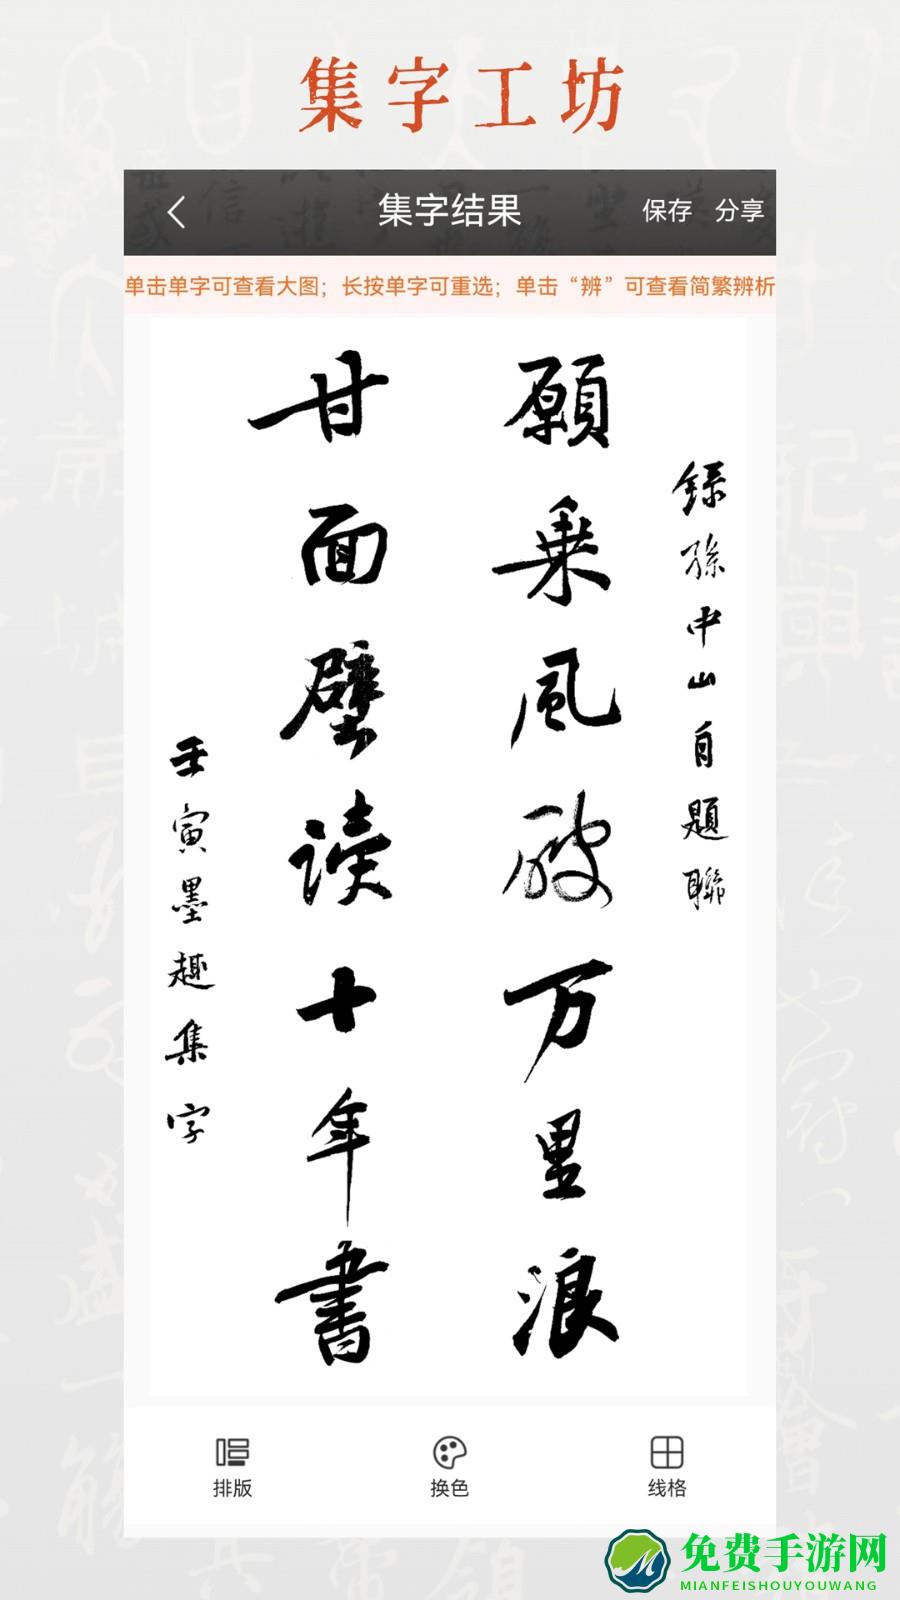 集字工坊
集字结果
保存
分享
单击单字可查看大图；长按单字可重选；单击“辨”可查看简繁辨析
録孫中山自題聯
願乗風破万里浪
甘面壁读十年書
壬寅墨趣集字
排版
换色
线格
免费手游网
MIANFEISHOUYOUWANG